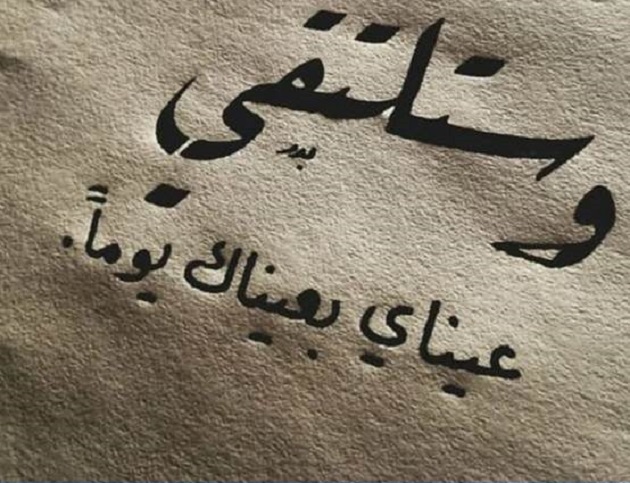 وستلتقي
بدر
عيناي بعيناك يوماً.